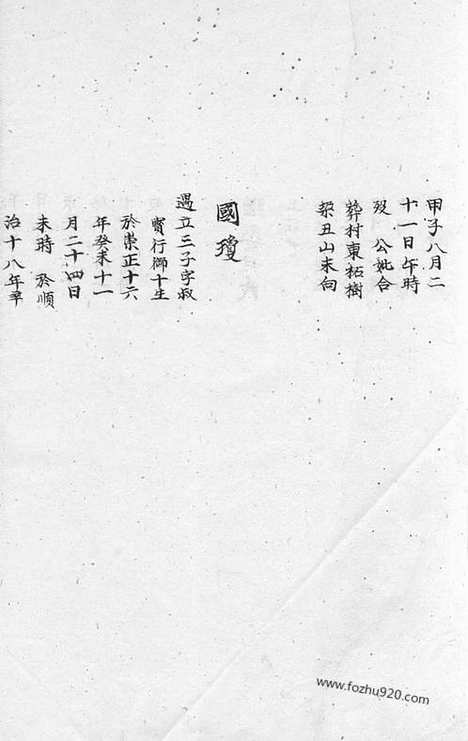 甲子八月二
十一日午時
歿 公妣合
葬村東柘樹
梁丑山未向
國瓊
遇立三子字叔
寳行獅十生
於崇正十六
年癸未十一
月二十四日
未時 於順
治十八年辛
www.fozhu920.com